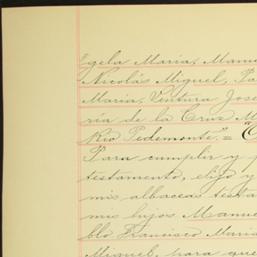 gela Maria, Manu
Nicolás Miguel, Pa
Maria, Ventura Jose
ría de la Cruz M
Rio Pedemonte." = C
Para cumplir y p
testamento, elijo y
mis albaceas testa
mis hijos Manue
blo Francisco Maria
Miguel, para que